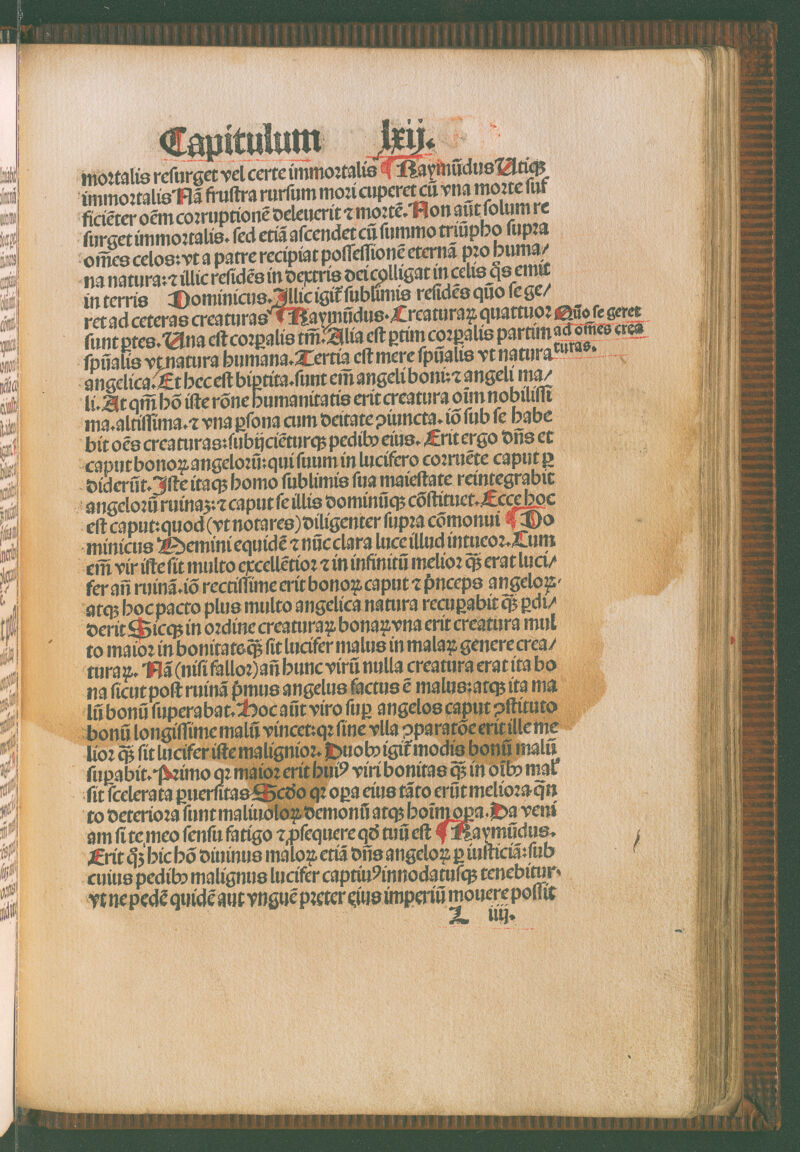 Capitulum lxij.
mortalis resurget vel certe immortalis ¶ Raymūdus Utiqꝫ
immortalis Nā frustra rursum mori cuperet cū vna morte suf
ficiēter oēm corruptionē deleuerit ⁊ mortē. Non aūt solum re
surget immortalis. sed etiā ascendet cū summo triūpho supra
om̄es celos: vt a patre recipiat possessionē eternā pro huma/
na natura: ⁊ illic residēs in dextris dei colligat in celis q̄s emit
in terris Dominicus. Illic igit̄ sublimis residēs quō se ge/
ret ad ceteras creaturas ¶ Raymūdus. Creaturaꝝ quattuor
Quō se geret
ad om̄es crea
turas.
sunt ꝑtes. Una est corꝑalis tm̄. Alia est ꝑtim corꝑalis partim
spūalis vt natura humana. Tertia est mere spūalis vt natura
angelica. Et hec est biꝑtita. sunt em̄ angeli boni: ⁊ angeli ma/
li. At qm̄ hō iste rōne humanitatis erit creatura oīm nobilissi
ma. altissima. ⁊ vna ꝑsona cum deitate ꝯiuncta. iō sub se habe
bit oēs creaturas: subijciēturqꝫ pedibꝰ eius. Erit ergo dn̄s et
caput bonoꝝ angelorū: qui suum in lucifero corruēte caput ꝑ
diderūt. Iste itaqꝫ homo sublimis sua maiestate reintegrabit
angelorū ruinaꝫ: ⁊ caput se illis dominūqꝫ cōstituet. Ecce hoc
est caput: quod (vt notares) diligenter supra cōmonui ¶ Do
minicus Memini equidē ⁊ nūc clara luce illud intueor. Cum
em̄ vir iste sit multo excellētior ⁊ in infinitū melior qꝫ̄ erat luci/
fer an̄ ruinā. iō rectissime erit bonoꝝ caput ⁊ p̄nceps angeloꝝ
atqꝫ hoc pacto plus multo angelica natura recuꝑabit qꝫ̄ ꝑdi/
derit Sicqꝫ in ordine creaturaꝝ bonaꝝ vna erit creatura mul
to maior in bonitate qꝫ̄ sit lucifer malus in malaꝝ genere crea/
turaꝝ. Nā (nisi fallor) an̄ hunc virū nulla creatura erat ita bo
na sicut post ruinā p̄mus angelus factus ē malus: atqꝫ ita ma
lū bonū superabat. Hoc aūt viro suꝑ angelos caput ꝯstituto
bonū longissime malū vincet: qꝛ sine vlla ꝯparatōe erit ille me
lior qꝫ̄ sit lucifer iste malignior. Duobꝰ igit̄ modis bonū malū
suꝑabit. Primo qꝛ maior erit huiꝰ viri bonitas qꝫ̄ in oībꝰ mal̄
sit scelerata ꝑuersitas Scd̄o qꝛ oꝑa eius tāto erūt meliora q̄n
to deteriora sunt maliuoloꝝ demonū atqꝫ hoīm oꝑa. Da veni
am si te meo sensu fatigo ⁊ ꝓsequere qd̄ tuū est ¶ Raymūdus.
Erit qꝫ̄ hic hō diuinus maloꝝ etiā dn̄s angeloꝝ ꝑ iusticiā: sub
cuius pedibꝰ malignus lucifer captiuꝰ innodatusqꝫ tenebitur.
vt ne pedē quidē aut vnguē preter eius imperiū mouere possit
L iiij.